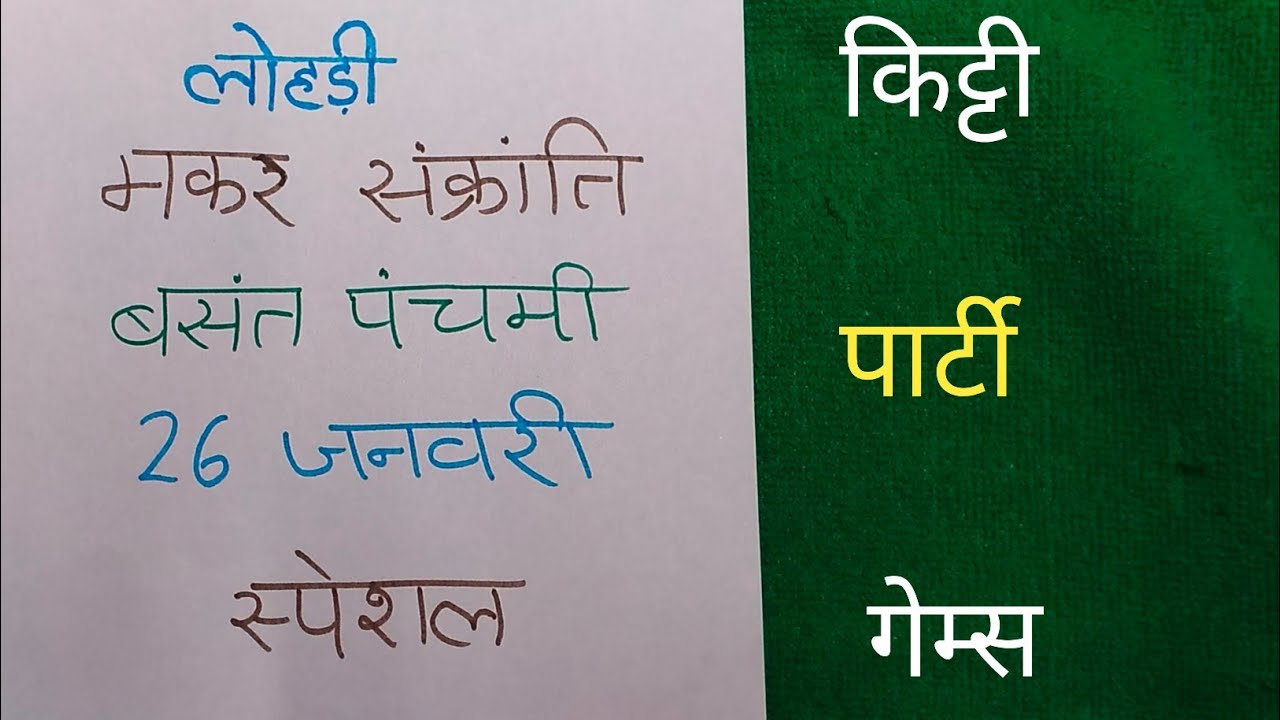 लोहड़ी
मकर संक्रांति
बसंत पंचमी
26 जनवरी
स्पेशल
किट्टी
पार्टी
गेम्स